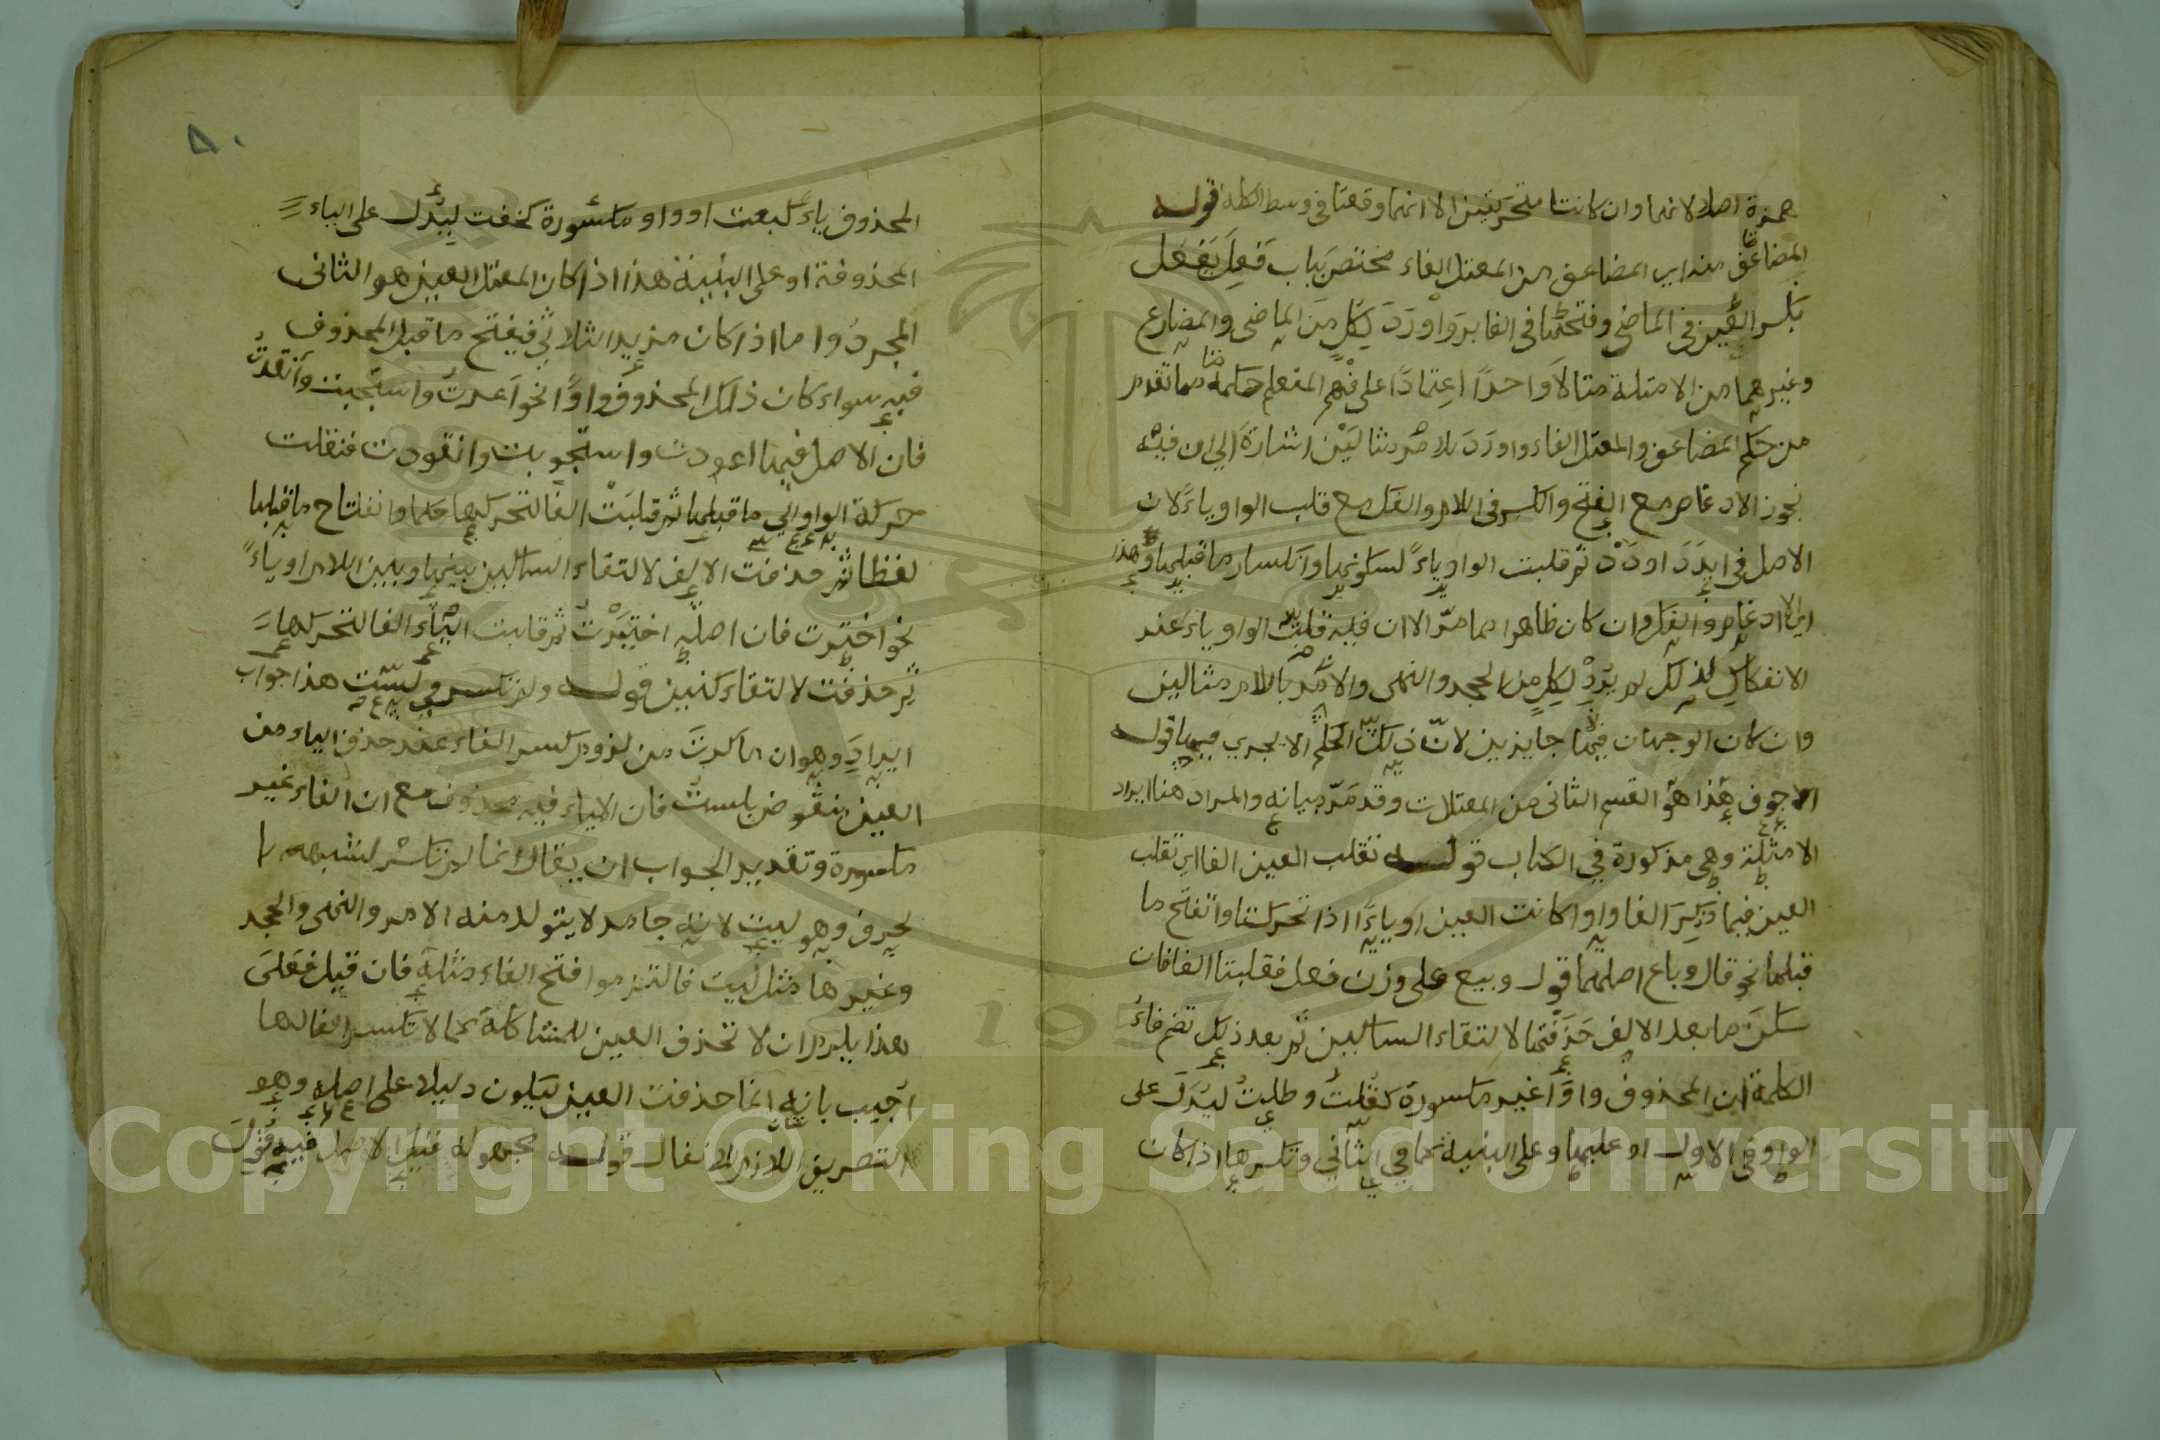 همزة اصلا لانهما وان كانتا متحركتين الا انهما وقعتا في وسط الكلمة قوله
المضاعف منه اي المضاعف من المعتل الفاء مختص بباب فَعِلَ يَفْعَل
بكسر العين في الماضي وفتحها في الغابر واورد لكل من الماضي والمضارع
وغيرهما من الامثلة مثالا واحدا اعتمادا على فهم المتعلم حكمه مما تقدم
من حكم المضاعف والمعتل الفاء واورد للامر مثالين اشارة الى ان فيه
يجوز الادغام مع الفتح والكسر في اللام والفك مع قلب الواو ياء لان
الاصل في ايدد اودد ثم قلبت الواو ياء لسكونها وانكسار ما قبلها وهذا
اي الادغام والفك وان كان ظاهرا مما مرّ الا ان فيه قلبت الواو ياء عند
الانفكاك لذلك لم يرد لكل من الجحد والنهي والامر باللام مثالين
وان كان الوجهان فيها جايزين لانّ ذلك الحكم لا يجري فيها قوله
الاجوف هذا هو القسم الثاني من المعتلات وقد مرّ بيانه والمراد هنا ايراد
الامثلة وهي مذكورة في الكتاب قوله تقلب العين الفا اي تقلب
العين فيما ذكر الفا واوا كانت العين او ياء اذا تحركتا وانفتح ما
قبلهما نحو قال وباع اصلهما قول وبيع على وزن فعل فقلبتا الفا فان
سكن ما بعد الالف حذفتها لالتقاء الساكنين ثم بعد ذلك تضم فاء
الكلمة ان المحذوف واوا غير مكسورة كقلت وطلت ليدل على
الواو في الاول او عليها وعلى البنية كما في الثاني وتكسرها اذا كان
٨٠
المحذوف ياء كبعت او واو مكسورة كخفت ليدل على الياء
المحذوفة او على البنية هذا اذا كان المعتل العين هو الثاني
المجرد واما اذا كان مزيد الثلاثي فيفتح ما قبل المحذوف
فيه سواء كان ذلك المحذوف واوا نحو اعدت واستجبت وانقدت
فان الاصل فيها اعودت واستجوبت وانقودت فنقلت
حركة الواو الى ما قبلها ثم قلبت الفا لتحركها حكما وانفتاح ما قبلها
لفظا ثم حذفت الالف لالتقاء الساكنين بينها وبين اللام او ياء
نحو اخترت فان اصله اختيرت ثم قلبت الياء الفا لتحركها
ثم حذفت لالتقاء كنين قوله ولم تكسر في لست هذا جواب
ايراد وهو ان ما كرت من لزوم كسر الفاء عند حذف الياء من
العين منقوض بلست فان الياء فيه محذوف مع ان الفاء غير
مكسورة وتقدير الجواب ان يقال انما لم تكسر لشبهه
بحرف وهو ليت لانه جامد لا يتولد منه الامر والنهي والجحد
وغيرها مثل ليت فالتزموا فتح الفاء مثله فان قيل فعلى
هذا يلزم ان لا تحذف العين للمشاكلة كما لا تكسر الفا لها
اجيب بانه انما حذفت العين ليكون دليلا على اصله وهو
التصريف اللازم للافعال قوله مجهوله قيل الاصل فيه قول